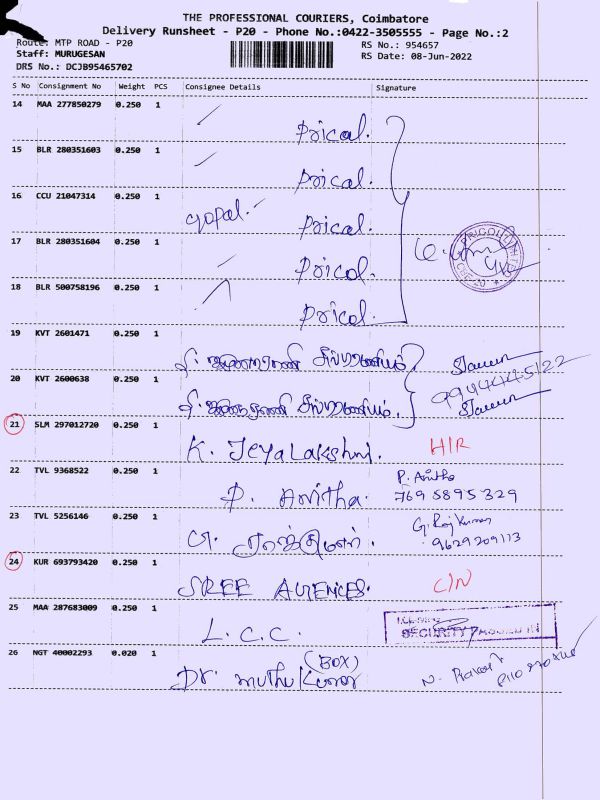 THE PROFESSIONAL COURIERS, Coimbatore
Delivery Runsheet - P20 - Phone No.:0422-3505555 - Page No.:2
Route: MTP ROAD - P20
RS No.: 954657
Staff: MURUGESAN
RS Date: 08-Jun-2022
DRS No.: DCJB95465702
S No Consignment No Weight PCS Consignee Details Signature
14 MAA 277850279 0.250 1
Prical.
15 BLR 280351603 0.250 1
Prical.
16 CCU 21047314 0.250 1
gopal. Prical.
17 BLR 280351604 0.250 1
Prical.
18 BLR 500758196 0.250 1
Prical.
19 KVT 2601471 0.250 1
20 KVT 2600638 0.250 1
21 SLM 297012720 0.250 1
K. Jeya Lakshmi. H/R
22 TVL 9368522 0.250 1
P. Anitha
P. Anitha. 7695895329
23 TVL 5256146 0.250 1
G. Raj Kumar
9629209113
24 KUR 693793420 0.250 1
SREE AGENCIES. C/N
25 MAA 287683009 0.250 1
L.C.C. SECURITY
26 NGT 40002293 0.020 1
(BOX)
Dr. muthu Kumar